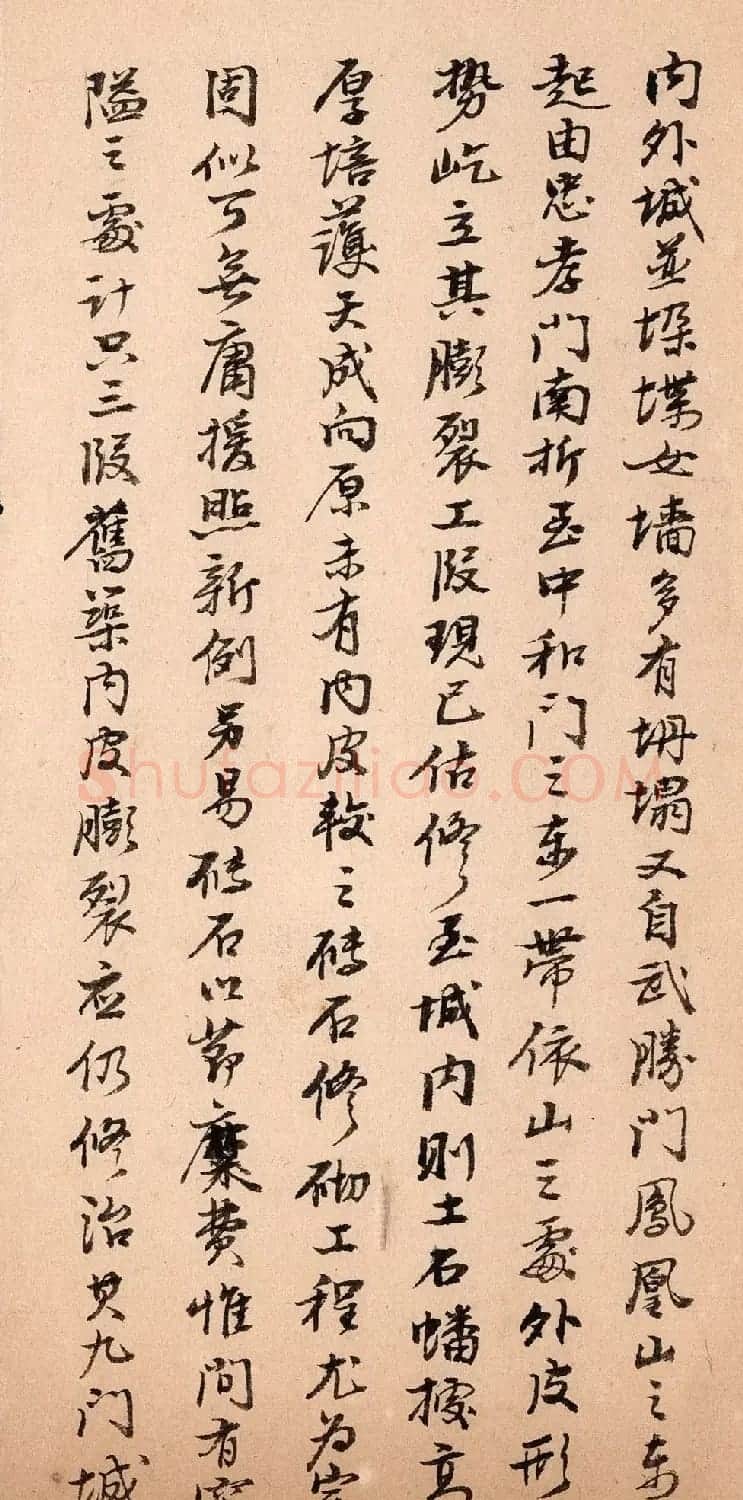 內外城並垛堞女墻多有坍塌又自武勝門鳳凰山之東
起由忠孝門南折至中和門之東一帶依山之處外皮形
勢屹立其膨裂工段現已估修至城內則土石蟠據高
厚培護天成向原未有內皮較之磚石修砌工程尤為
固似可無庸援照新例另易磚石以節糜費惟間有
隘之處計只三段舊築內皮膨裂应仍修治其九門城
Shufaziliao.COM